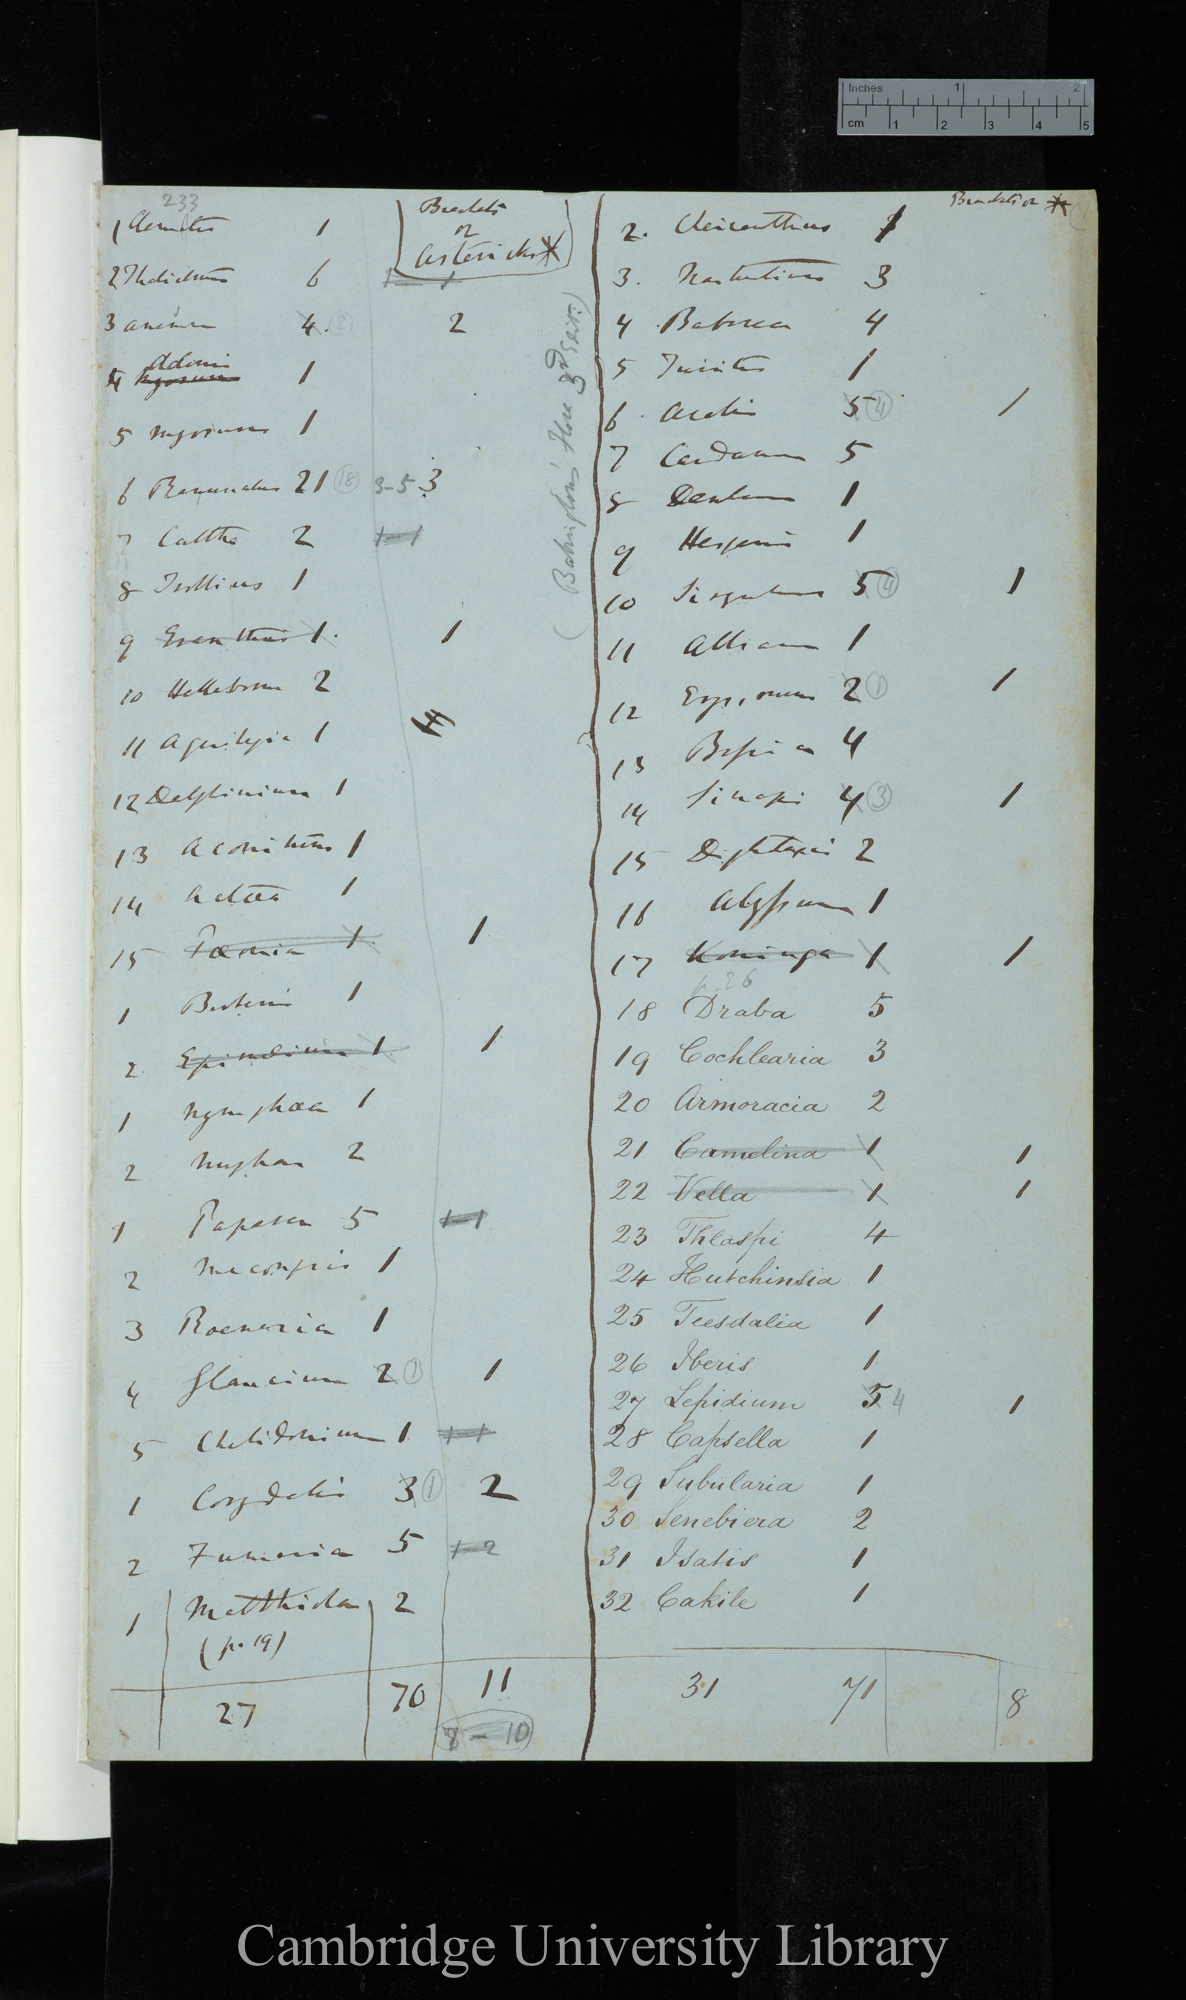 Inches 1 2
cm 1 2 3 4 5
233
1 Clematis 1
Brackets
or
Astericks *
2 Thalictrum 6 1–1
3 Anemone 4. (2) 2
4 Adonis 1
5 Myosurus 1
6 Ranunculus 21 (18) 3–5 3
7 Caltha 2 1–1
8 Trollius 1
9 Eranthis 1. 1
10 Helleborus 2
11 Aquilegia 1
12 Delphinium 1
13 Aconitum 1
14 Actaea 1
15 Pæonia 1 1
1 Berberis 1
2 Epimedium 1 1
1 Nymphaea 1
2 Nuphar 2
1 Papaver 5 1–1
2 Meconopsis 1
3 Roemeria 1
4 Glaucium 2 (1) 1
5 Chelidonium 1 1–1
1 Corydalis 3 (1) 2
2 Fumaria 5 1–2
1 Matthiola 2
(p. 19)
27 70 11
7 – 10
(Babington's Flora 3rd Edit.)
Brackets or *
2. Cheiranthus 1
3. Nasturtium 3
4 Barbarea 4
5 Turritis 1
6 Arabis 5 (4) 1
7 Cardamine 5
8 Dentaria 1
9 Hesperis 1
10 Sisymbrium 5 (4) 1
11 Alliaria 1
12 Erysimum 2 (1) 1
13 Brassica 4
14 Sinapis 4 (3) 1
15 Diplotaxis 2
16 Alyssum 1
17 Koniga 1 1
p. 26
18 Draba 5
19 Cochlearia 3
20 Armoracia 2
21 Camelina 1 1
22 Vella 1 1
23 Thlaspi 4
24 Hutchinsia 1
25 Teesdalia 1
26 Iberis 1
27 Lepidium 5 4 1
28 Capsella 1
29 Subularia 1
30 Senebiera 2
31 Isatis 1
32 Cakile 1
31 71 8
Cambridge University Library